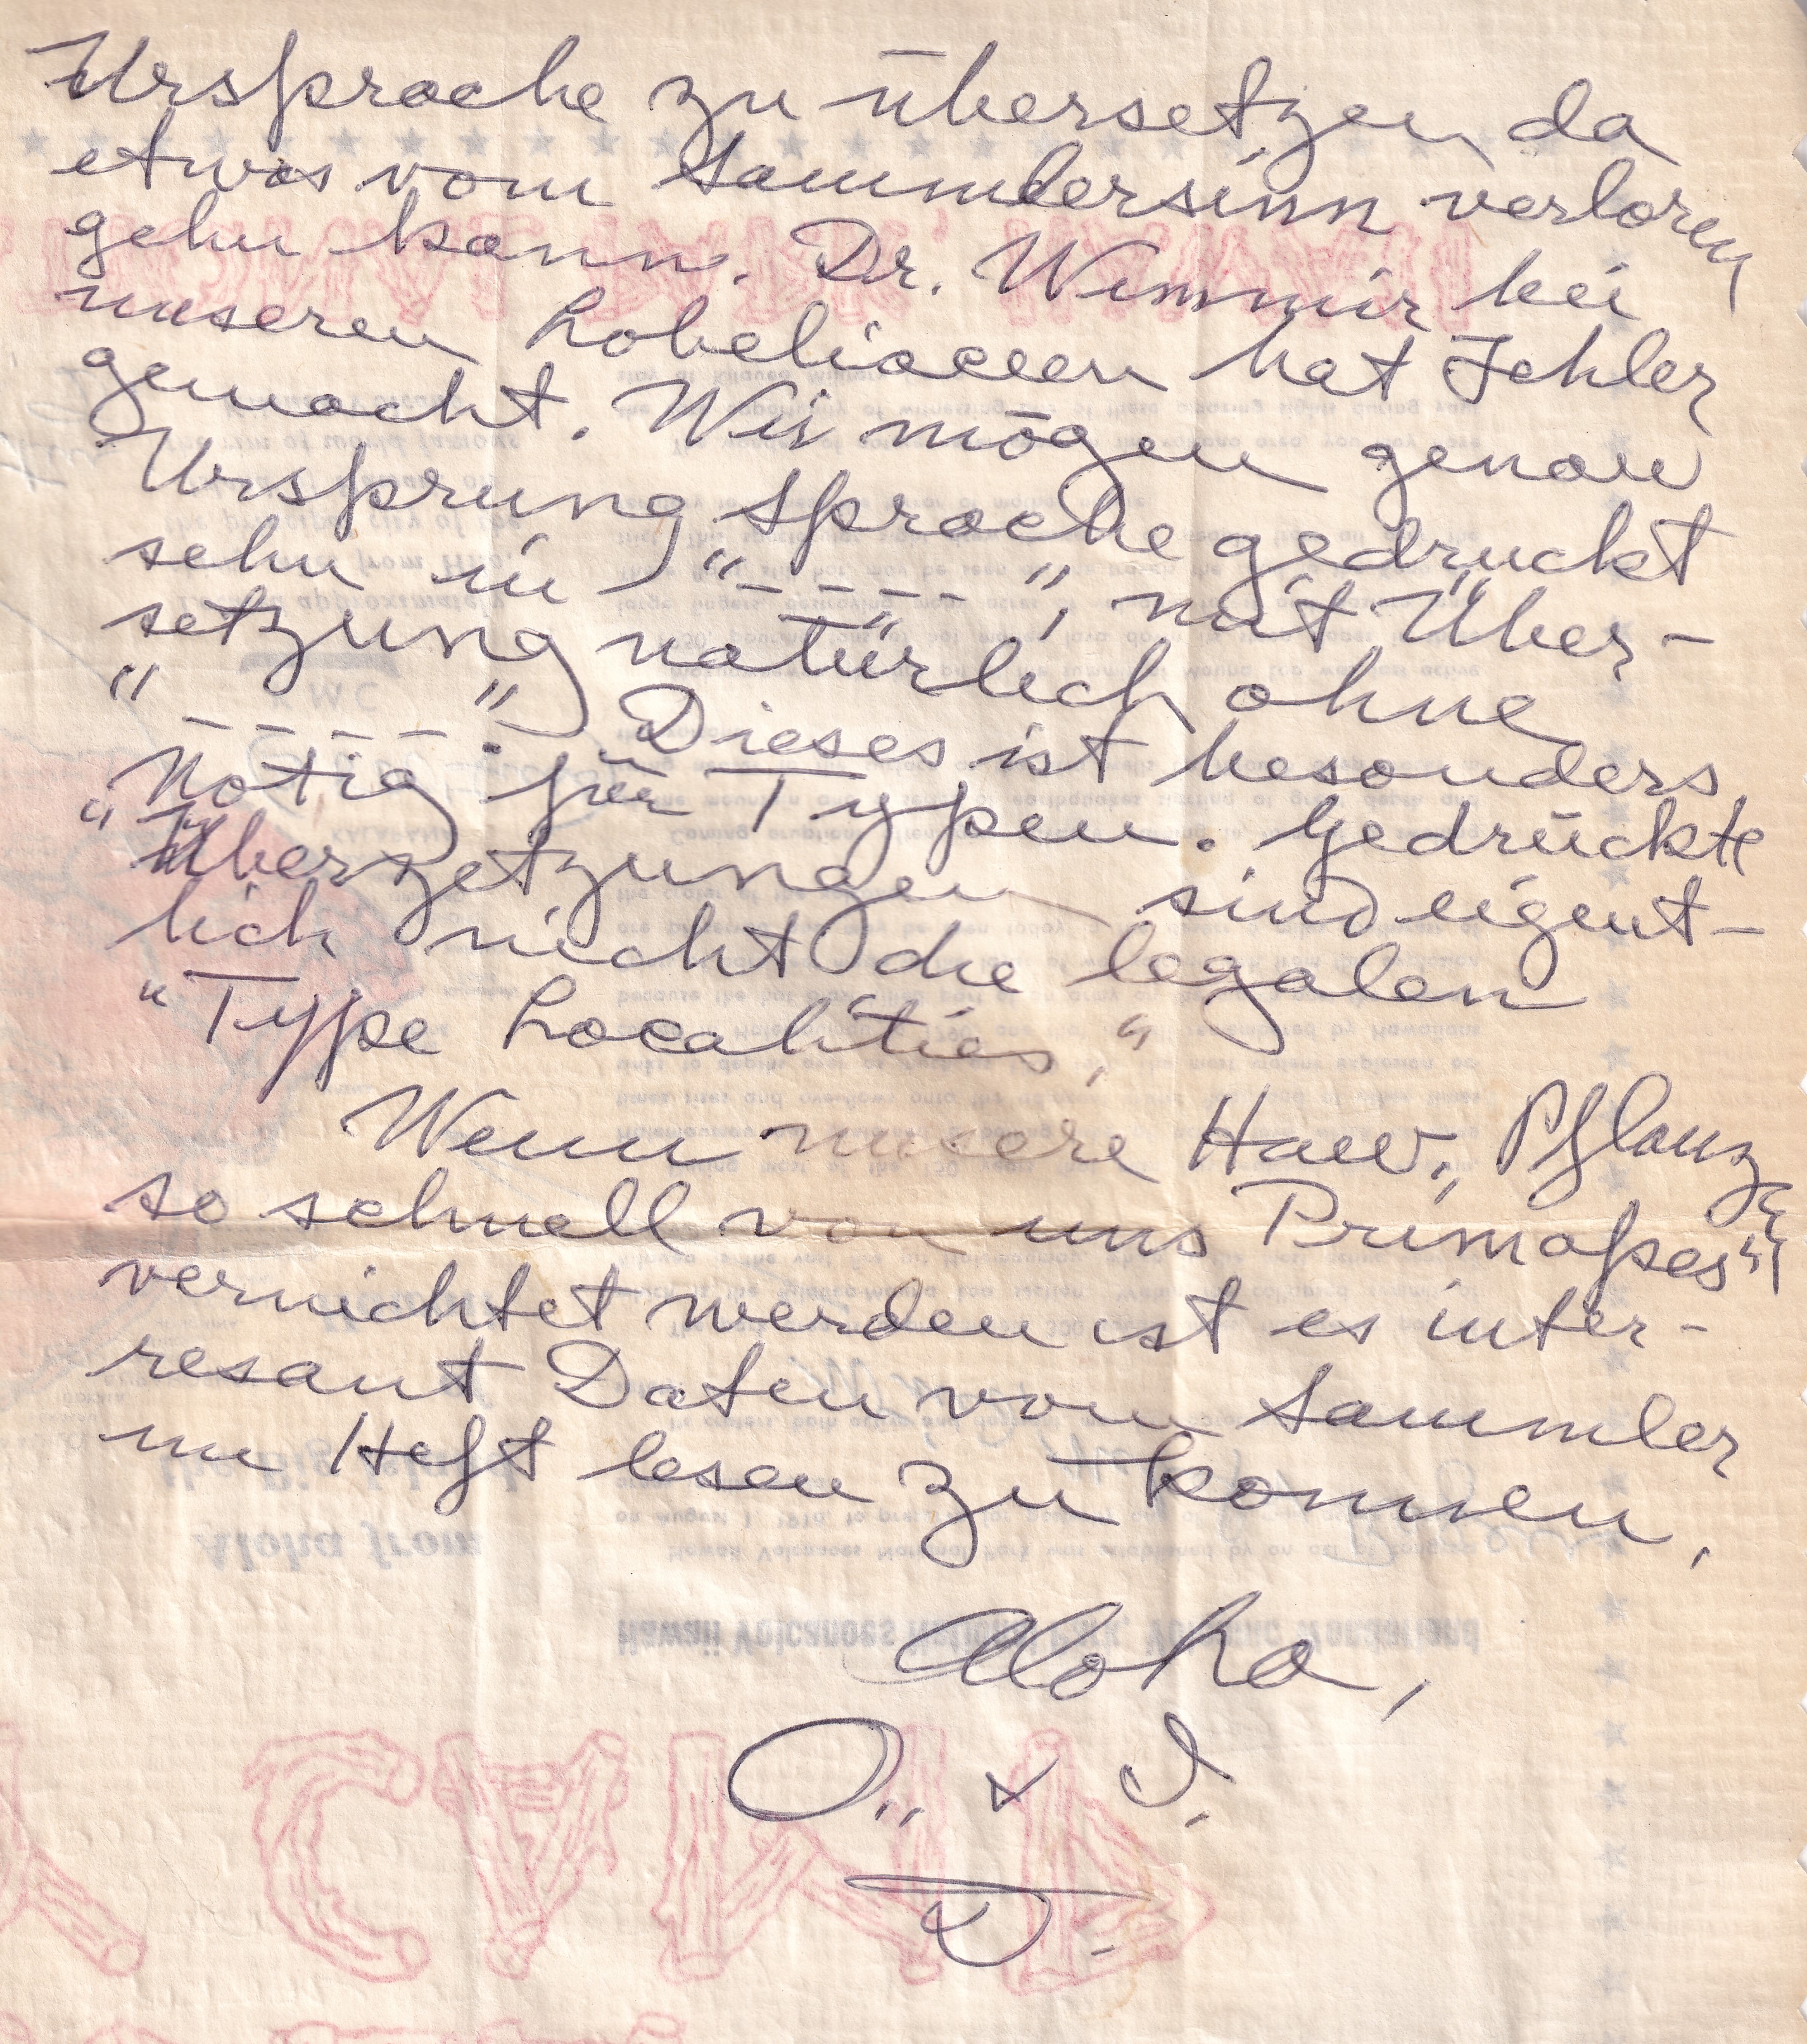 Ursprache zu übersetzen da
etwas vom Sammlersinn verloren
gehn kann. Dr. Wimmir bei
unseren Lobeliaceen hat Fehler
gemacht. Wir mögen genau
Ursprung Sprache gedruckt
sehn in "-----", mit Über-
setzung natürlich ohne
"-----". Dieses ist besonders
nötig für Typen. Gedrückte
"Überzetzungen sind eigent-
lich nicht die legalen
"Type Localities."
Wenn unsere Haw. Pflanzen
so schnell von uns Primapes"
vernichtet werden ist es inter-
resant Daten vom Sammler
im Heft lesen zu konnen.
Aloha,
O. & I.
D.